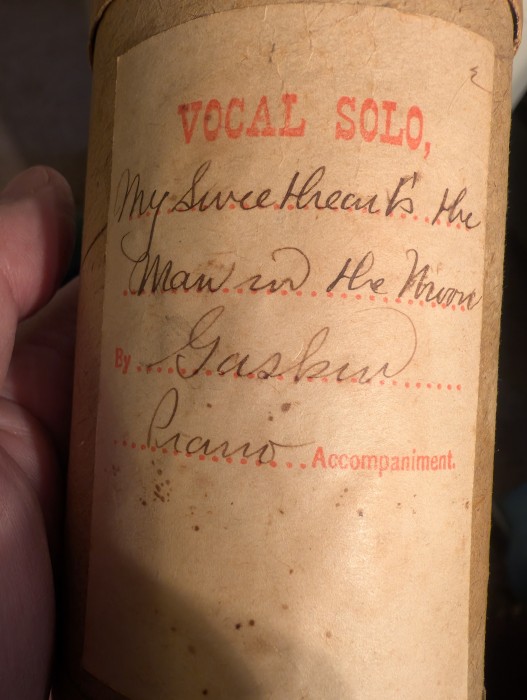 VOCAL SOLO,
My Sweetheart's the
Man in the Moon
By Gaskin
Piano Accompaniment.